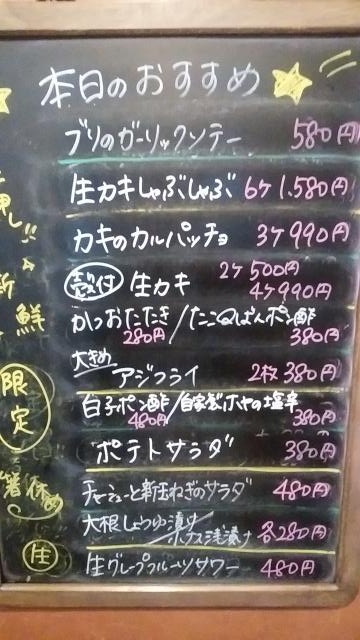 本日のおすすめ
ブリのガーリックソテー 580円
生カキしゃぶしゃぶ 6ヶ 1.580円
カキのカルパッチョ 3ヶ 990円
殻付 生カキ 2ヶ 500円
4ヶ 990円
かつおたたき/たこのぱぱんポン酢
280円 380円
大きめ アジフライ 2枚 380円
白子ポン酢/自家製ホヤの塩辛
480円 380円
ポテトサラダ 380円
チャーシューと新玉ねぎのサラダ 480円
大根しょうゆ漬け
/ナス浅漬け 各280円
生グレープフルーツサワー 480円
押し!!
新鮮
限定
箸休め
生